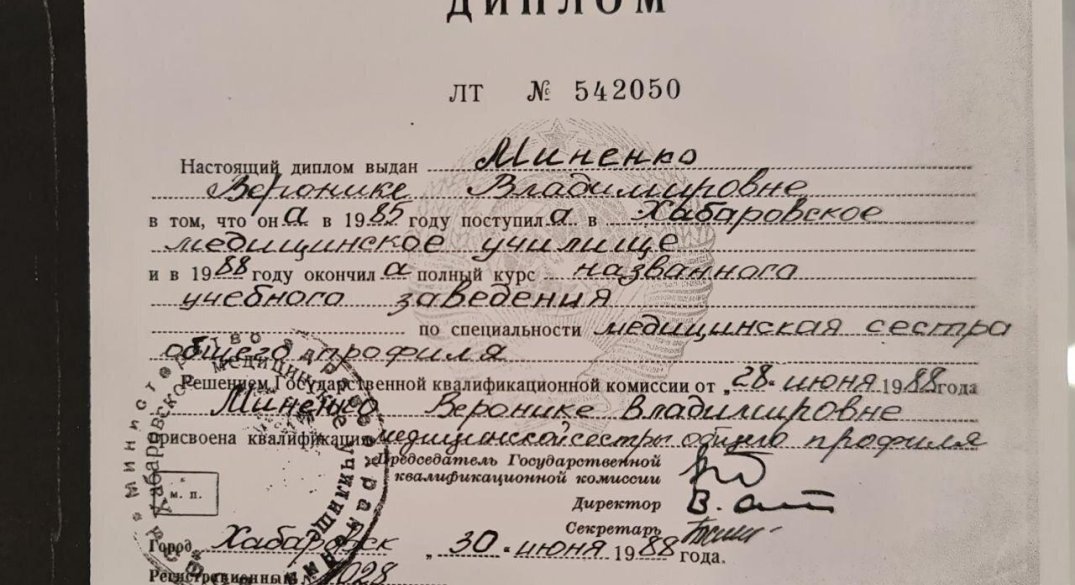 ДИПЛОМ
ЛТ № 542050
Настоящий диплом выдан Миненко
Веронике Владимировне
в том, что он а в 1985 году поступил а в Хабаровское
медицинское училище
и в 1988 году окончил а полный курс названного
учебного заведения
по специальности медицинская сестра
общего профиля
Решением Государственной квалификационной комиссии от „28" июня 1988 года
Миненко Веронике Владимировне
присвоена квалификация медицинской сестры общего профиля
Председатель Государственной
квалификационной комиссии
Директор
Секретарь
м. п.
Город Хабаровск „30" июня 1988 года.
Регистрационный № 1028